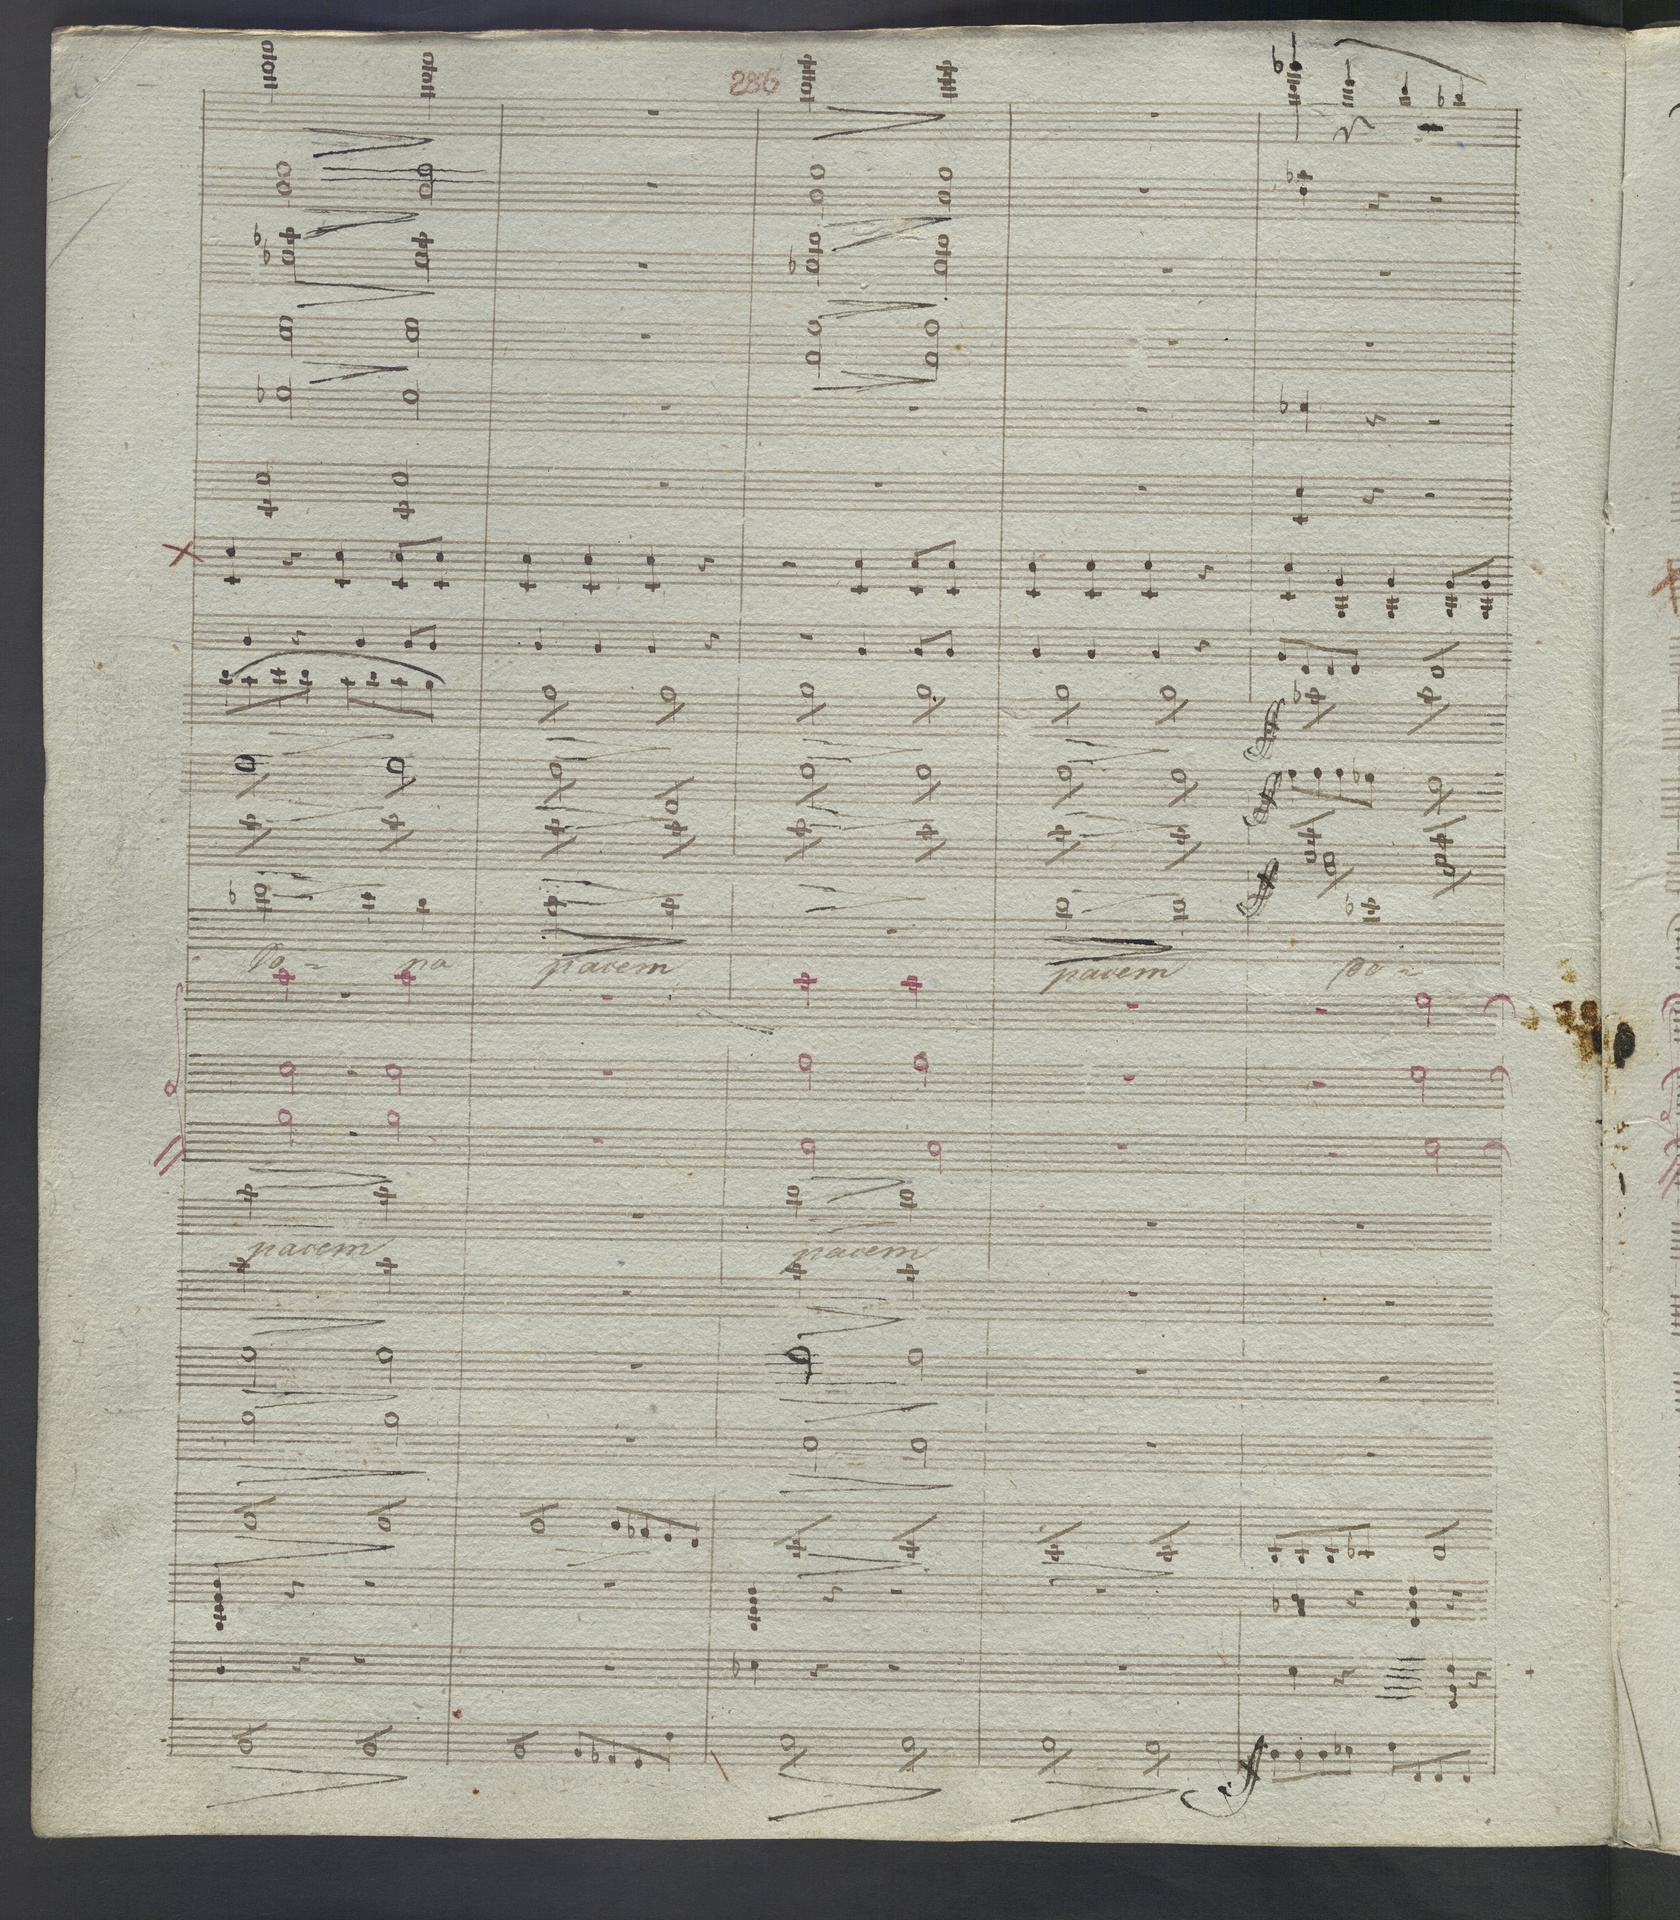 286
Do - na pacem pacem Do -
pacem pacem